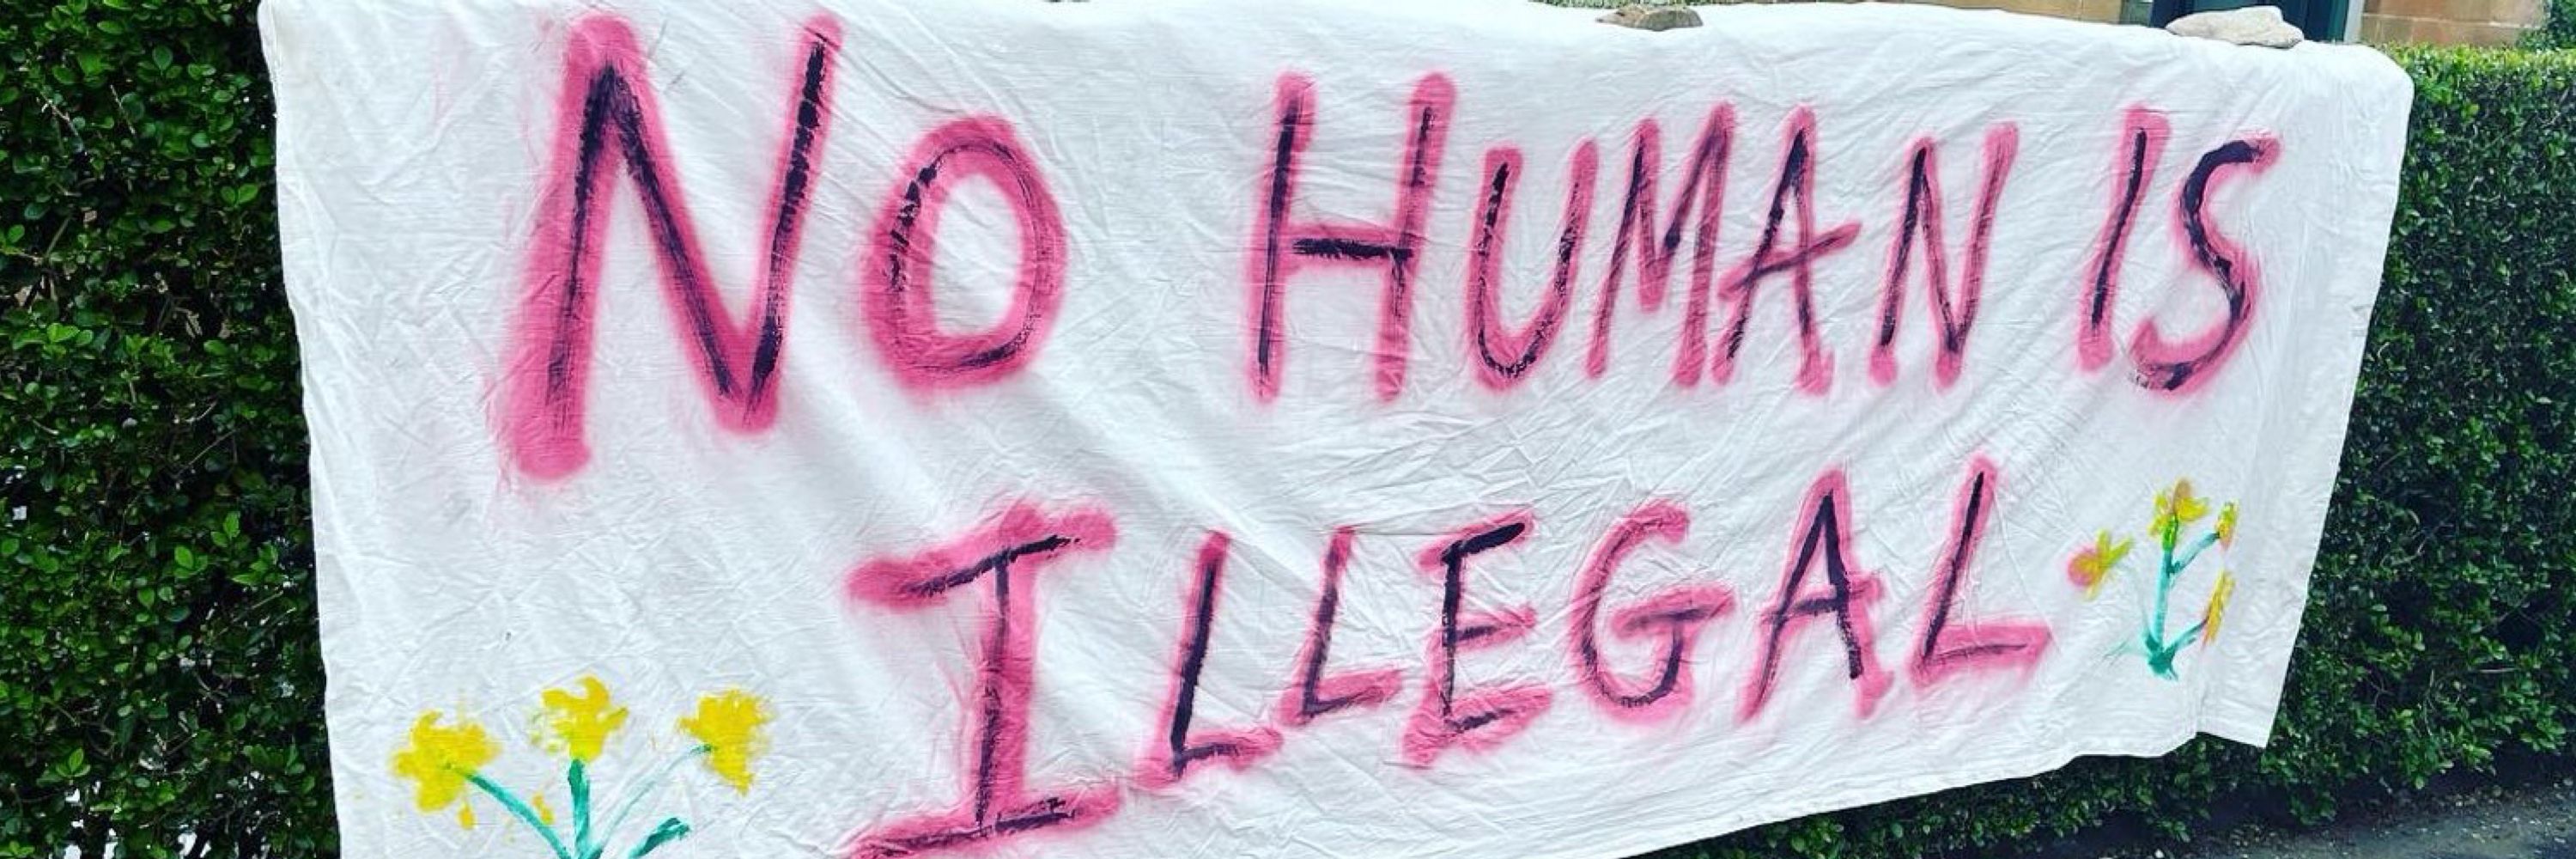 No HUMAN IS
ILLEGAL